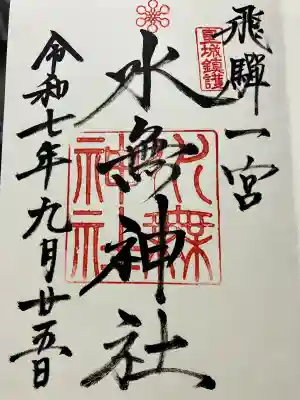 飛騨一宮
皇城鎮護
水無神社
水無神社
令和七年九月廿五日